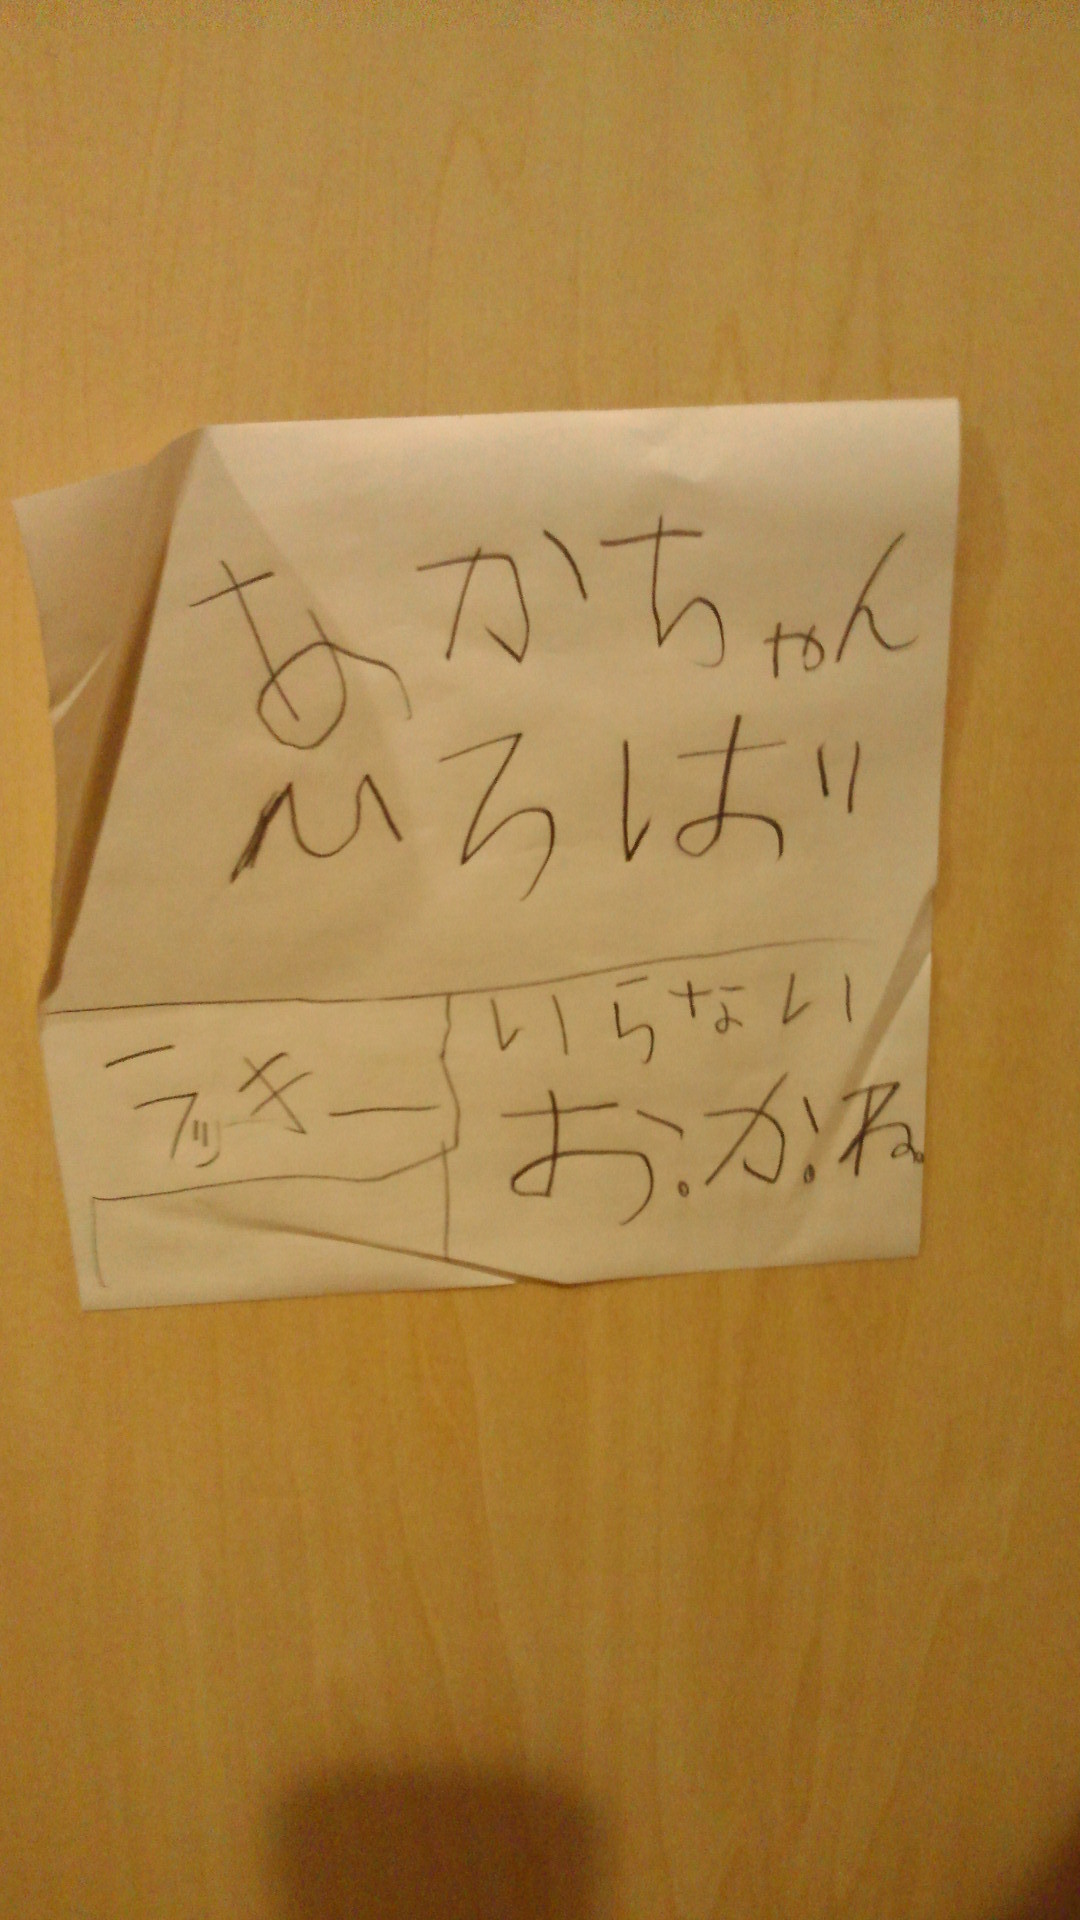 あかちゃん
ひろば
ラッキー
いらない
お.か.ね.